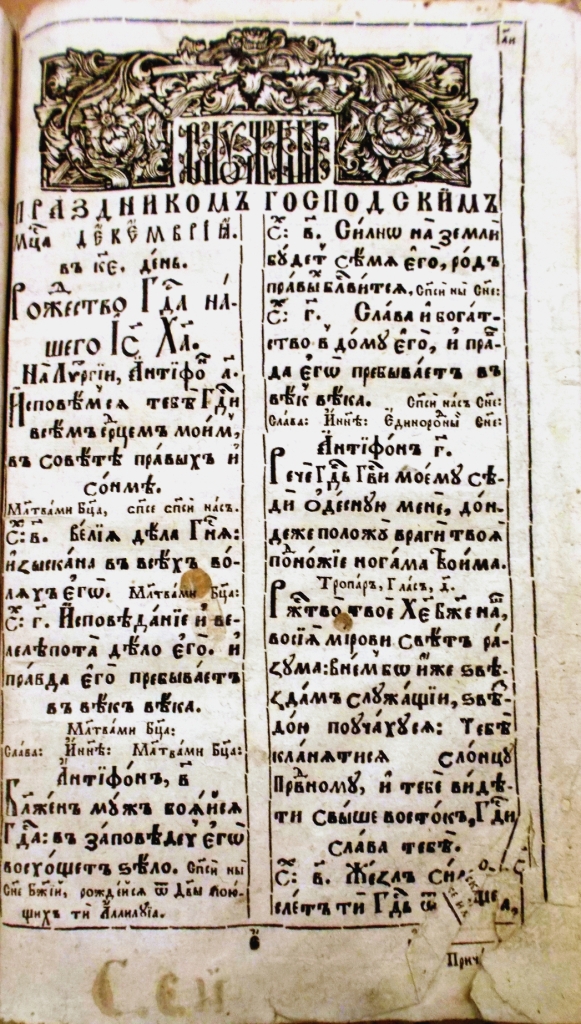 СЛУЖЕБНИ
ПРАЗДНИКОМЪ ГОСПОДСКИМЪ
Мц҃а ДЕКЕМВРІА.
въ к҃е. день.
Рожество Гд҃а на-
шего Іс҃ Ха҃.
На Лѷргіи, Антіфо҃ а҃.
Исповѣмся тебѣ Гд҃и
всемъ срцемъ моим,
въ совѣтѣ правыхъ и
сонмѣ.
Мл҃твами Бц҃а, сп҃се сп҃си насъ.
С҃: в҃. Велія дѣла Гн҃я:
изыскана въ всѣхъ во-
ляхъ єгѡ. Мл҃твами Бц҃а:
С҃: г҃. Исповѣданіе и ве-
лелѣпота дѣло єгѡ. и
правда єгѡ пребываетъ
въ вѣкъ вѣка.
Мл҃твами Бц҃а:
Слава: Инн҃ѣ: Мл҃твами Бц҃а:
Антіфонъ, в҃
Блажен мужъ бояйся
Гд҃а: въ заповѣдех єгѡ
восхощетъ ѕѣло. Сп҃си ны
Сн҃е Бж҃ій, рождейся ѿ Дв҃ы пою-
щихъ ти Аллилуіа.
С҃: в҃. Силно на земли
будетъ сѣмя єгѡ, род
правых блгвится, Сп҃си ны Сн҃е:
С҃: г҃. Слава и богат-
ство в дому єгѡ, и прав-
да єгѡ пребываетъ въ
вѣкъ вѣка. Сп҃си насъ Сн҃е:
Слава: Инн҃ѣ: Єдинородны Сн҃е:
Антіфонъ г҃.
Рече Гд҃ь Гд҃ви моєму сѣ-
ди ѡдесную мене, дон-
деже положу враги твоя
подножіе ногама твоима.
Тропаръ, Гласъ, д҃.
Рж҃тво твое Хе҃ Бж҃е на҃,
восія мірови свѣтъ ра-
зума: внем бѡ иже ѕвѣ-
здамъ служащіи, ѕвѣ-
дою поучахуся: Тебѣ
кланятися слонцу
Првдному, и тебе видѣ-
ти свыше востокъ, Гд҃и
слава тебѣ.
С҃: в҃. Жезлъ
слетъ ти Гд҃ь ѿ
Прич
С. ей